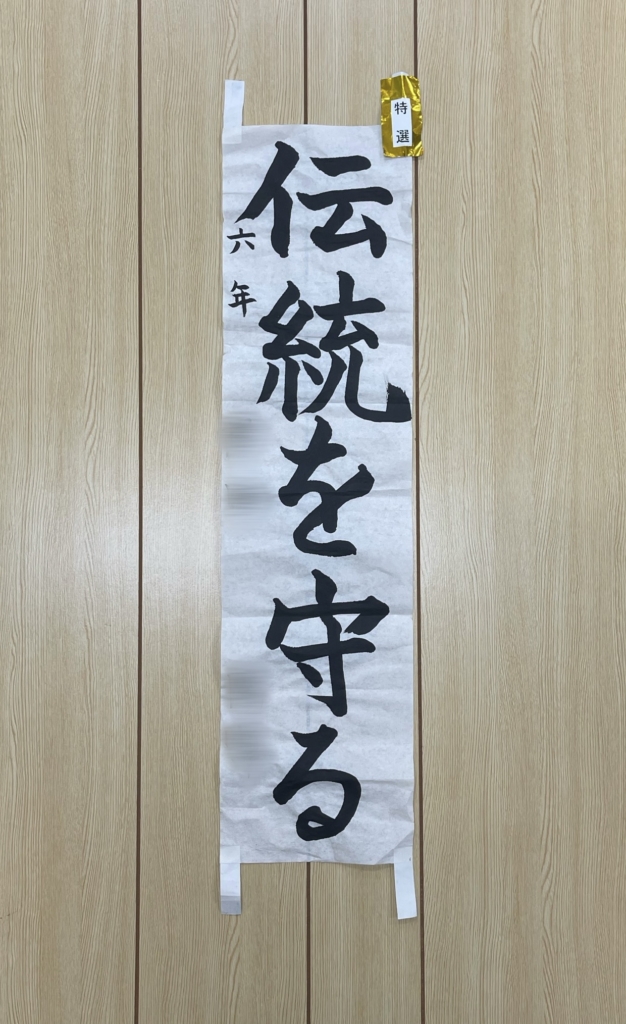 特選
伝統を守る
六年